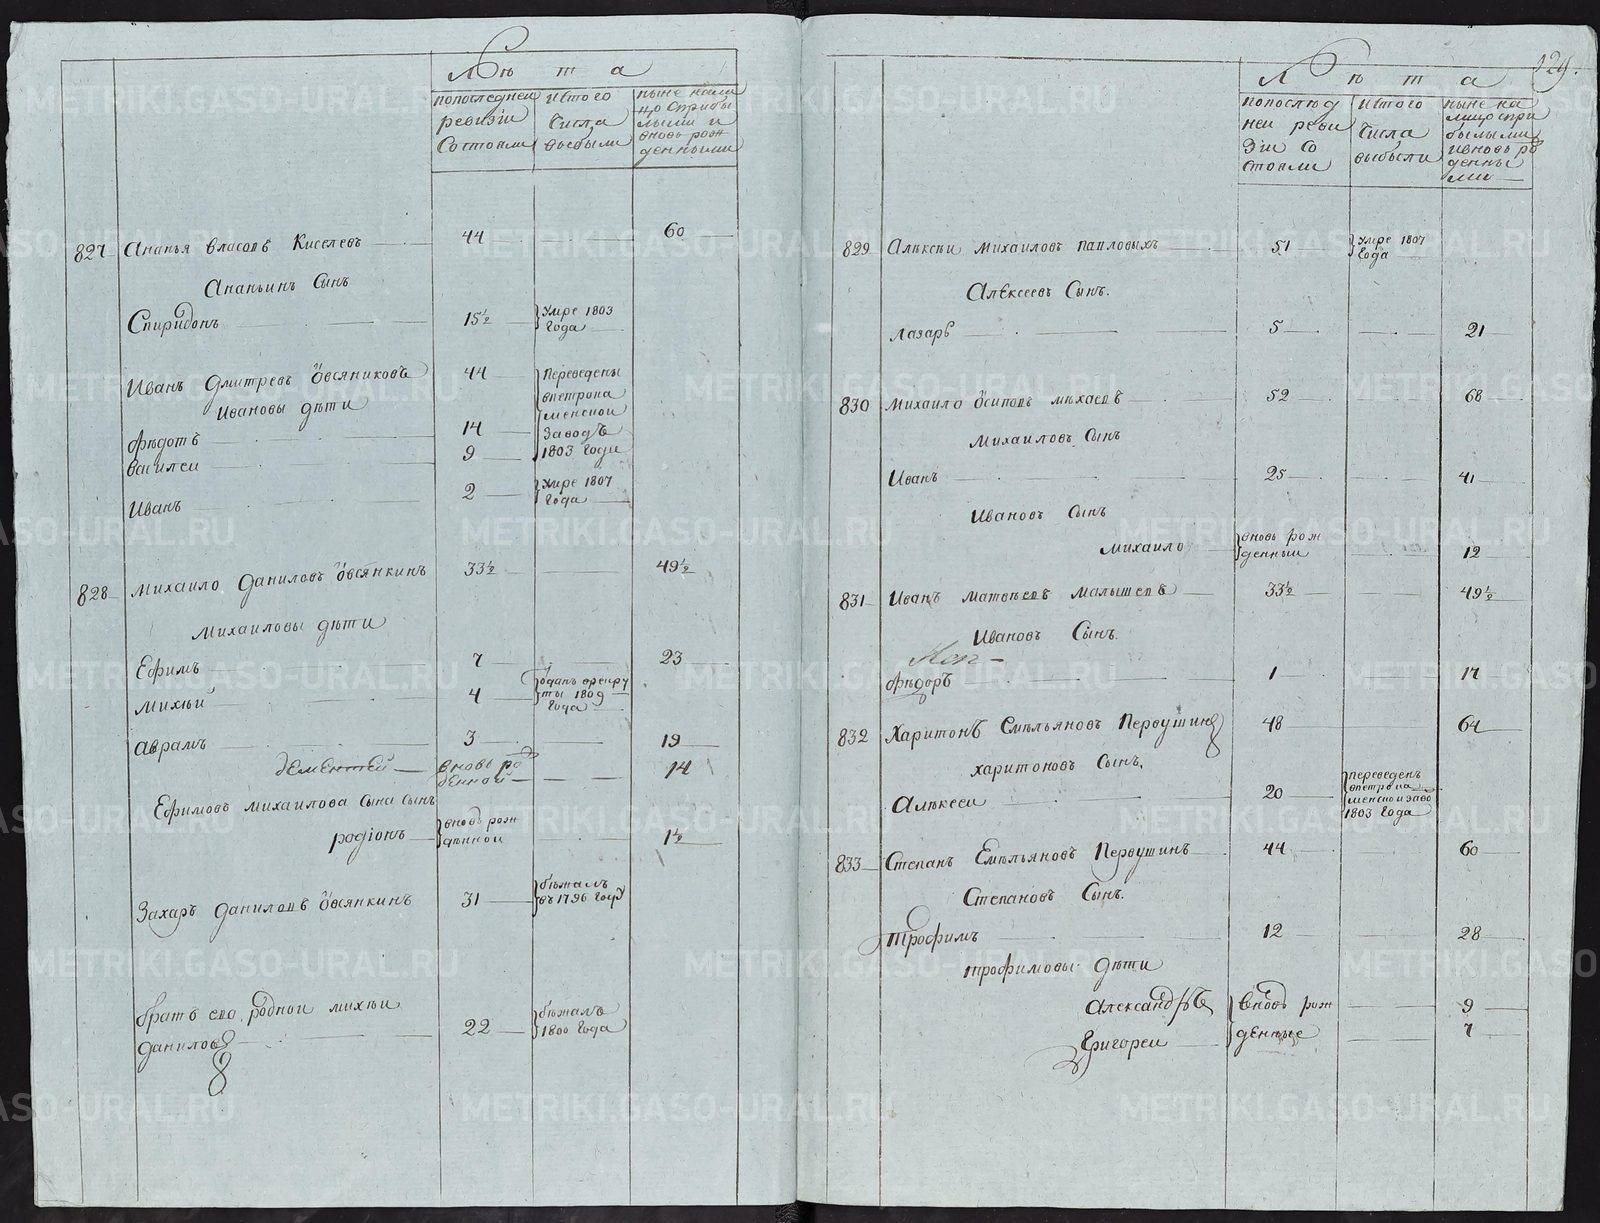 Лѣта
попоследней ревизіи состояли
ис того числа выбыли
ныне нали цо сприбы лыми и вновь рож денными
827 Ананья Власовъ Киселевъ 44 60
Ананьинъ Сынъ
Спиридонъ 15½ умре 1803 Года
Иванъ Дмитревъ Овсяниковъ 44 Переведены
Ивановы дѣти
Ѳедотъ 14
Василеи 9 Заводъ 1803 Года
Иванъ 2 умре 1807 Года
828 Михаило Даниловъ Овсянкинъ 33½ 49½
Михаиловы дѣти
Ефимъ 7 23
Михѣй 4 1809 Года
Аврамъ 3 19
Дементей вновь ро денной 14
Ефимовъ Михаилова Сына Сынъ
родіонъ вновь рож денной 1½
Захаръ Даниловъ Овсянкинъ 31 бѣжалъ въ 1796 Году
братъ ево родной михѣи
Даниловъ 22 бѣжалъ 1800 Года
129.
Лѣта
попослед ней реви зіи со стояли
ис того числа выбыли
ныне на лицо спри былыми и вновь ро денны ми
829 Алексѣи Михаиловъ Павловыхъ 51 умре 1807 Года
Алексеевъ Сынъ.
Лазарь 5 21
830 Михаило Осиповъ 52 68
Михаиловъ Сынъ
Иванъ 25 41
Ивановъ Сынъ
Михаило вновь рож денный 12
831 Иванъ Матвѣевъ Малышевъ 33½ 49½
Ивановъ Сынъ.
Ѳедоръ 1 17
832 Харитонъ Емельяновъ Первушинъ 48 64
Харитоновъ Сынъ.
Алексеи 20 переведенъ 1803 Года
833 Степанъ Емельяновъ Первушинъ 44 60
Степановъ Сынъ.
Трофимъ 12 28
Трофимовы дѣти
Александръ вновь рож 9
Григореи денные 7
METRIKI.GASO-URAL.RU